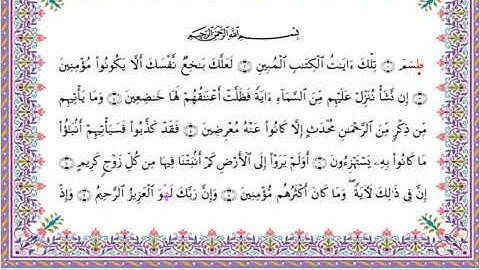 بِسْمِ اللَّهِ الرَّحْمَٰنِ الرَّحِيمِ
طسٓمٓ ۝١ تِلْكَ ءَايَٰتُ ٱلْكِتَٰبِ ٱلْمُبِينِ ۝٢ لَعَلَّكَ بَٰخِعٌ نَّفْسَكَ أَلَّا يَكُونُوا۟ مُؤْمِنِينَ
۝٣ إِن نَّشَأْ نُنَزِّلْ عَلَيْهِم مِّنَ ٱلسَّمَآءِ ءَايَةً فَظَلَّتْ أَعْنَٰقُهُمْ لَهَا خَٰضِعِينَ ۝٤ وَمَا يَأْتِيهِم
مِّن ذِكْرٍ مِّنَ ٱلرَّحْمَٰنِ مُحْدَثٍ إِلَّا كَانُوا۟ عَنْهُ مُعْرِضِينَ ۝٥ فَقَدْ كَذَّبُوا۟ فَسَيَأْتِيهِمْ أَنۢبَٰٓؤُا۟
مَا كَانُوا۟ بِهِۦ يَسْتَهْزِءُونَ ۝٦ أَوَلَمْ يَرَوْا۟ إِلَى ٱلْأَرْضِ كَمْ أَنۢبَتْنَا فِيهَا مِن كُلِّ زَوْجٍ كَرِيمٍ ۝٧
إِنَّ فِى ذَٰلِكَ لَءَايَةً ۖ وَمَا كَانَ أَكْثَرُهُم مُّؤْمِنِينَ ۝٨ وَإِنَّ رَبَّكَ لَهُوَ ٱلْعَزِيزُ ٱلرَّحِيمُ ۝٩ وَإِذْ